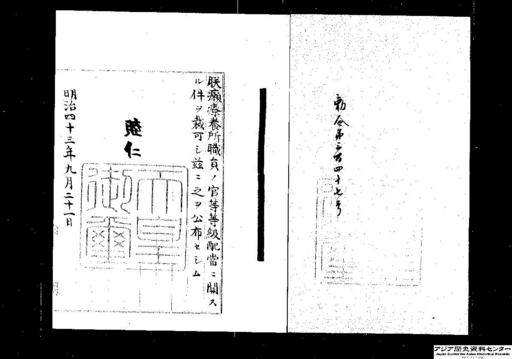 勅令第三百四十七号
朕癩療養所職員ノ官等等級配當ニ關ス
ル件ヲ裁可シ茲ニ之ヲ公布セシム
睦仁
天皇御璽
明治四十三年九月二十一日
アジア歴史資料センター
Japan Center for Asian Historical Records